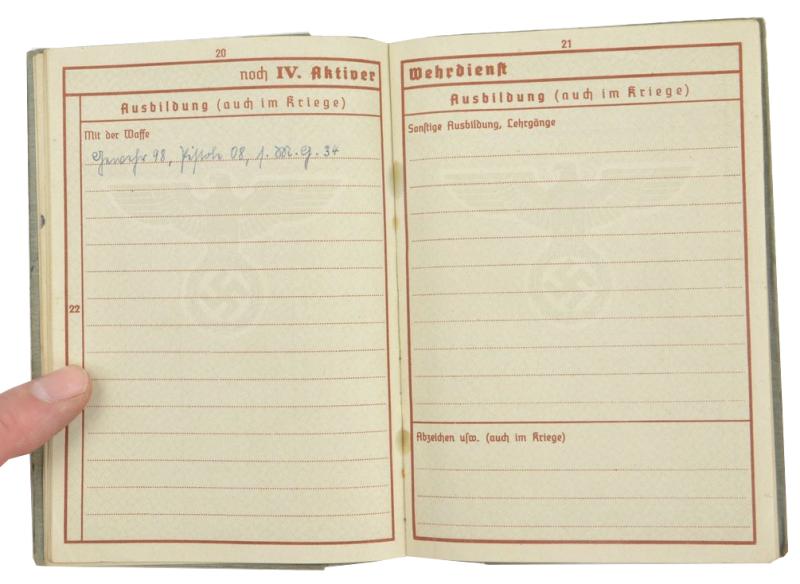 20
noch IV. Aktiver
Ausbildung (auch im Kriege)
Mit der Waffe
Gewehr 98, Pistole 08, s. M. G. 34
22
21
Wehrdienst
Ausbildung (auch im Kriege)
Sonstige Ausbildung, Lehrgänge
Abzeichen usw. (auch im Kriege)